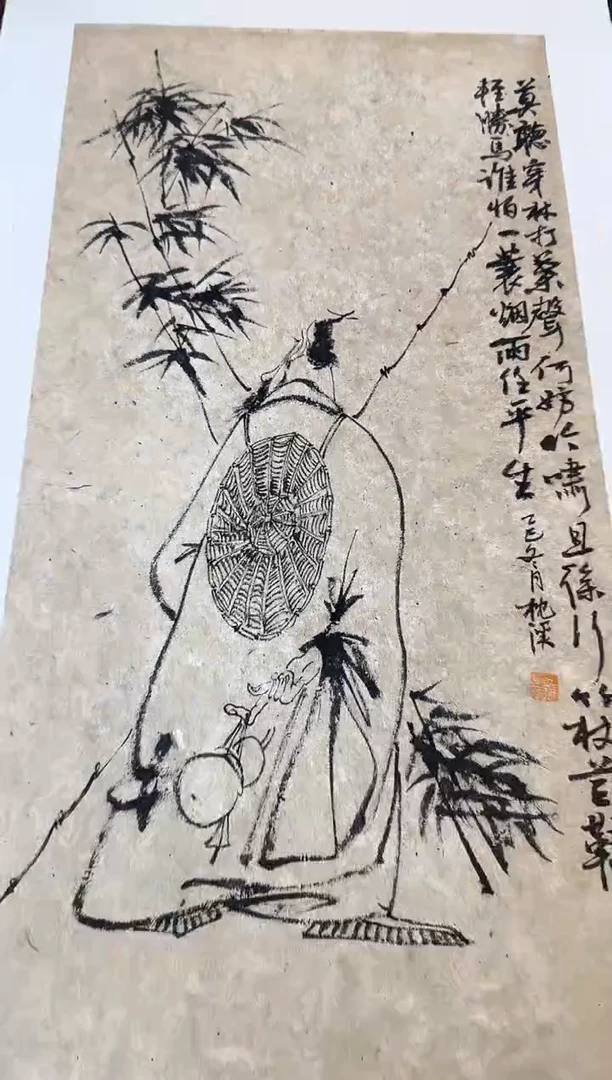 莫聽穿林打葉聲何妨吟嘯且徐行竹杖芒鞋
輕勝馬谁怕一蓑烟雨任平生
乙巳冬月枕